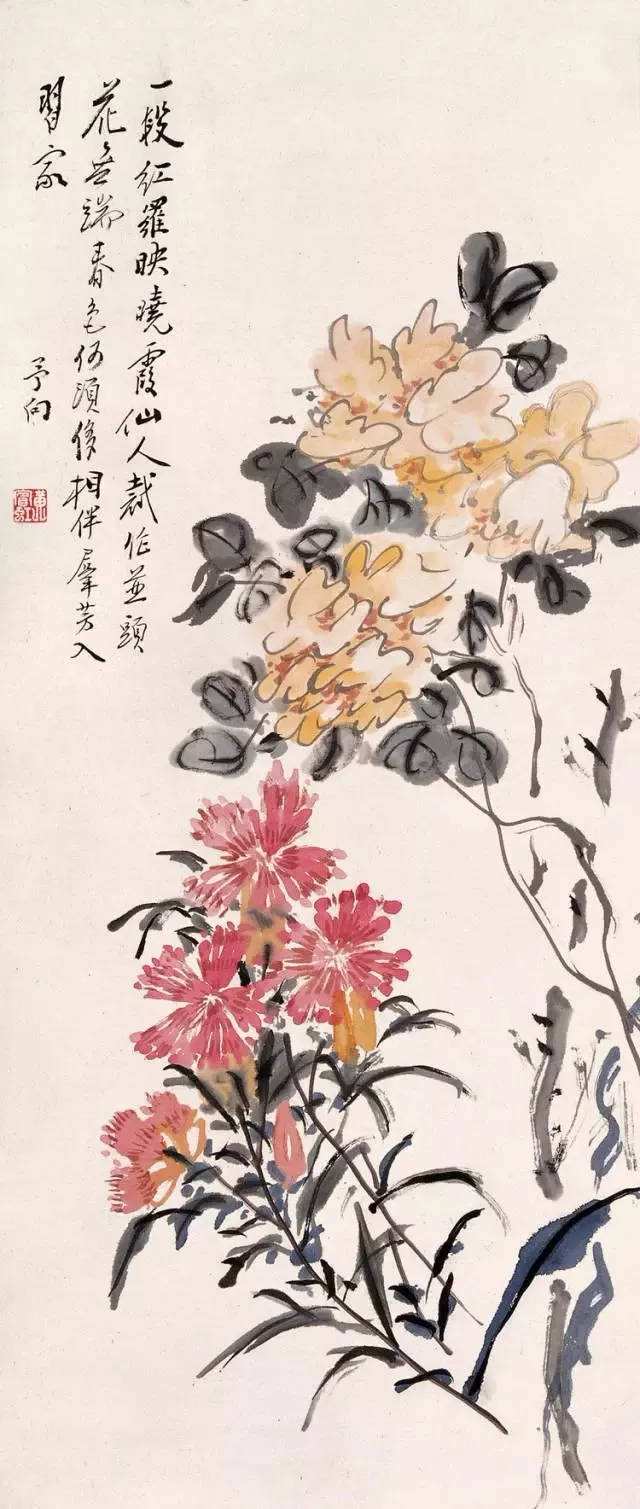 一段紅羅映曉霞仙人裁作並頭
花無端春色何須相伴羣芳入
習家
予向
黃賓虹